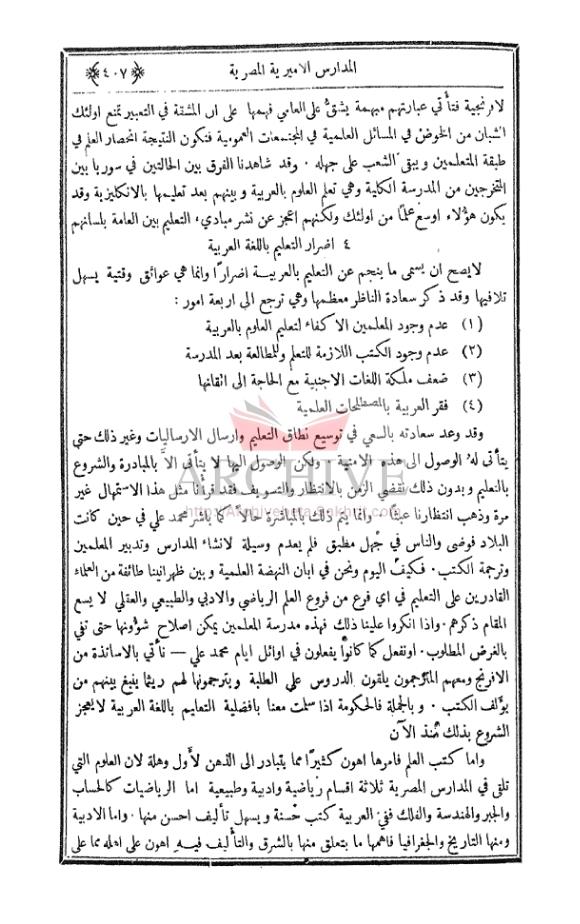 المدارس الاميرية المصرية
﴿٤٠٧﴾
لافرنجية فتأتي عبارتهم مبهمة يشق على العامي فهمها على ان المشقة في التعبير تمنع اولئك
الشبان من الخوض في المسائل العلمية في المجتمعات العمومية فتكون النتيجة انحصار العلم في
طبقة المتعلمين و يبقى الشعب على جهله ٠ وقد شاهدنا الفرق بين الحالتين في سوريا بين
المتخرجين من المدرسة الكلية وهي تعلم العلوم بالعربية و بينهم بعد تعليمها بالانكليزية وقد
يكون هؤلاء اوسع علماً من اولئك ولكنهم اعجز عن نشر مبادىء التعليم بين العامة بلسانهم
٤ اضرار التعليم باللغة العربية
لايصح ان يسمى ما ينجم عن التعليم بالعربية اضراراً وانما هي عوائق وقتية يسهل
تلافيها وقد ذكر سعادة الناظر معظمها وهي ترجع الى اربعة امور :
(١) عدم وجود المعلمين الاكفاء لتعليم العلوم بالعربية
(٢) عدم وجود الكتب اللازمة للتعلم وللمطالعة بعد المدرسة
(٣) ضعف ملكة اللغات الاجنبية مع الحاجة الى اتقانها
(٤) فقر العربية بالمصطلحات العلمية
وقد وعد سعادته بالسعي في توسيع نطاق التعليم وارسال الارساليات وغير ذلك حتى
يتأتى لهُ الوصول الى هذه الامنية ٠ ولكن الوصول اليها لا يتأتى الاَّ بالمبادرة والشروع
بالتعليم و بدون ذلك نقضي الزمن بالانتظار والتسويف فقد قرأنا مثل هذا الاستمهال غير
مرة وذهب انتظارنا عبثاً ٠ وانما يتم ذلك بالمباشرة حالاً كما باشر محمد علي في حين كانت
البلاد فوضى والناس في جهل مطبق فلم يعدم وسيلة لانشاء المدارس وتدبير المعلمين
وترجمة الكتب ٠ فكيف اليوم ونحن في ابان النهضة العلمية و بين ظهرانينا طائفة من العلماء
القادرين على التعليم في اي فرع من فروع العلم الرياضي والادبي والطبيعي والعقلي لا يسع
المقام ذكرهم ٠ واذا انكروا علينا ذلك فهذه مدرسة المعلمين يمكن اصلاح شؤونها حتى تفي
بالغرض المطلوب ٠ اونفعل كما كانوا يفعلون في اوائل ايام محمد علي — نأتي بالاساتذة من
الافرنج ومعهم المترجمون يلقون الدروس على الطلبة و يترجمونها لهم ريثما ينبغ بينهم من
يؤلف الكتب ٠ و بالجملة فالحكومة اذا سلمت معنا بافضلية التعليم باللغة العربية لا يعجز
الشروع بذلك مُنذ الآن
واما كتب العلم فامرها اهون كثيراً مما يتبادر الى الذهن لأول وهلة لان العلوم التي
تلقى في المدارس المصرية ثلاثة اقسام رياضية وادبية وطبيعية اما الرياضيات كالحساب
والجبر والهندسة والفلك ففي العربية كتب حسنة و يسهل تأليف احسن منها ٠ واما الادبية
ومنها التاريخ والجغرافيا فاهمها ما يتعلق منها بالشرق والتأليف فيه اهون على اهله مما على
ARCHIVE
http://Archivebeta.Sakhrit.com